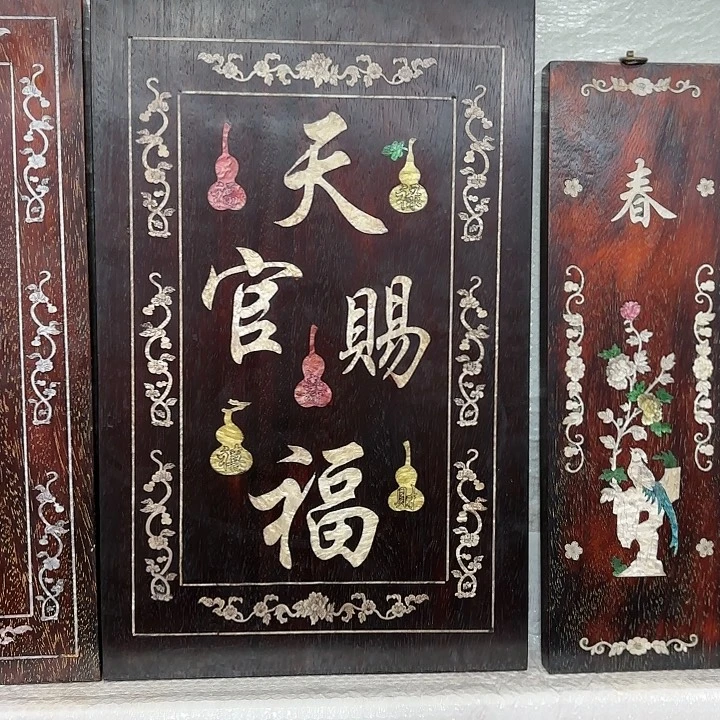 天
官 賜
福
財
春